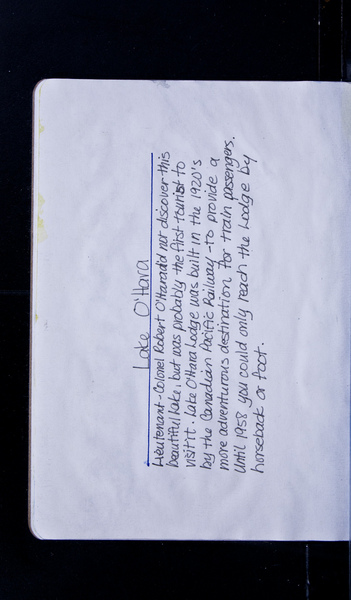 Lake O'Hara
Lieutenant-Colonel Robert O'Hara did not discover this
beautiful lake, but was probably the first tourist to
visit it. Lake O'Hara Lodge was built in the 1920's
by the Canadian Pacific Railway - to provide a
more adventurous destination for train passengers.
Until 1958 you could only reach the Lodge by
horseback or foot.